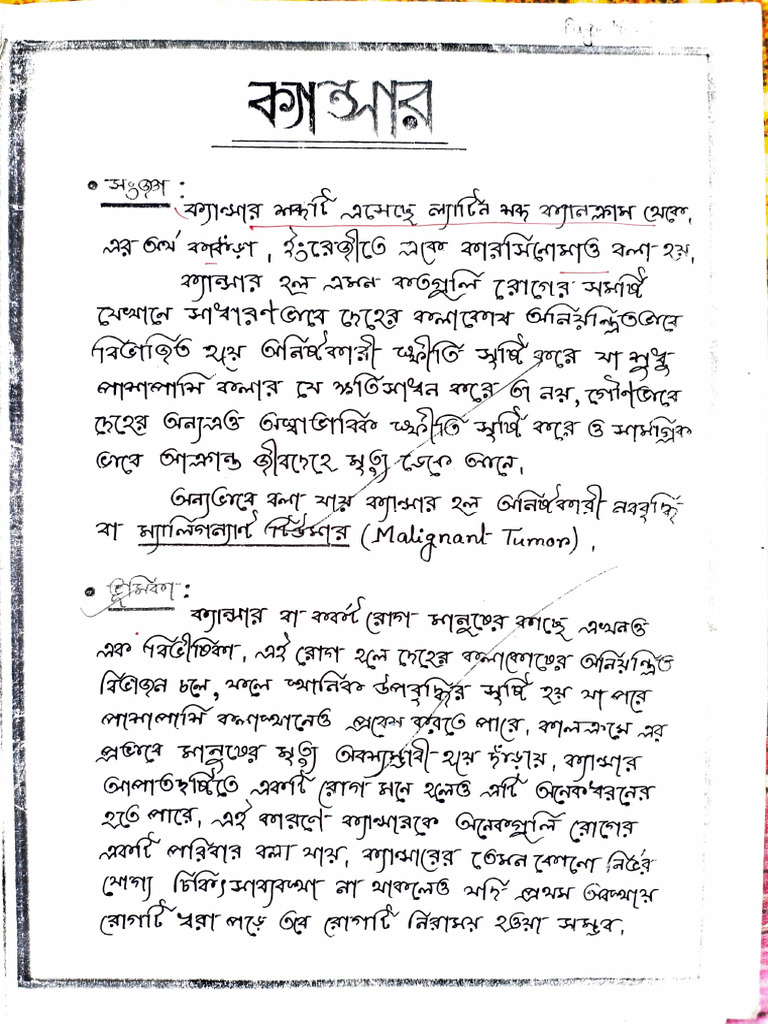 ক্যান্সার
• সংজ্ঞা :
ক্যান্সার শব্দটি এসেছে ল্যাটিন শব্দ ক্যানক্রাম থেকে,
এর অর্থ কাকঁড়া, ইংরেজীতে একে কারসিনোমাও বলা হয়,
ক্যান্সার হল এমন কতগুলি রোগের সমষ্টি
যেখানে সাধারণভাবে দেহের কলাকোষ অনিয়ন্ত্রিতভাবে
বিভাজিত হয়ে অনিষ্টকারী স্ফীতি সৃষ্টি করে যা শুধু
পাশাপাশি কলার যে ক্ষতিসাধন করে তা নয়, গৌণভাবে
দেহের অন্যত্রও অস্বাভাবিক স্ফীতি সৃষ্টি করে ও সামগ্রিক
ভাবে আক্রান্ত জীবদেহে মৃত্যু ডেকে আনে,
অন্যভাবে বলা যায় ক্যান্সার হল অনিষ্টকারী নববৃদ্ধি
বা ম্যালিগন্যান্ট টিউমার (Malignant Tumor),
• ভূমিকা :
ক্যান্সার বা কর্কট রোগ মানুষের কাছে এখনও
এক বিভীষিকা, এই রোগ হলে দেহের কলাকোষের অনিয়ন্ত্রিত
বিভাজন চলে, ফলে স্থানিক উপবৃদ্ধির সৃষ্টি হয় যা পরে
পাশাপাশি কলাস্থানেও প্রবেশ করতে পারে, কালক্রমে এর
প্রভাবে মানুষের মৃত্যু অবশ্যম্ভাবী হয়ে দাঁড়ায়, ক্যান্সার
আপাতদৃষ্টিতে একটি রোগ মনে হলেও এটি অনেকধরনের
হতে পারে, এই কারণে ক্যান্সারকে অনেকগুলি রোগের
একটি পরিবার বলা যায়, ক্যান্সারের তেমন কোনো নির্ভর
যোগ্য চিকিৎসাব্যবস্থা না থাকলেও যদি প্রথম অবস্থায়
রোগটি ধরা পড়ে তবে রোগটি নিরাময় হওয়া সম্ভব,